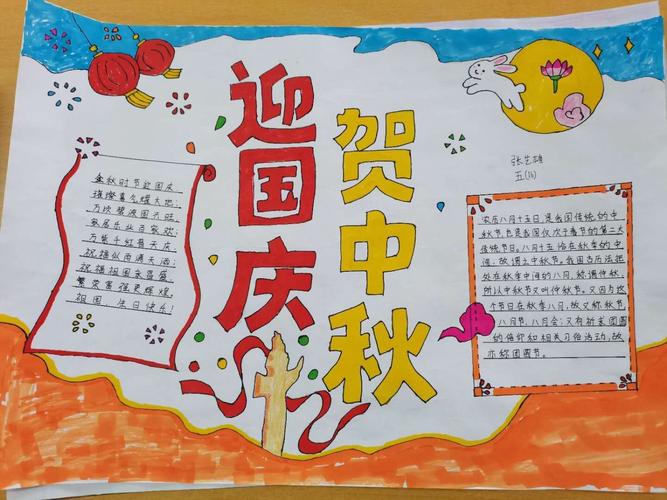 迎国庆
贺中秋
金秋时节赴国庆
璀璨喜气耀大地;
万顷碧波国齐旺,
家居乐业百家欢;
万紫千红普天庆,
祝福似雨满天洒;
祝福祖国家昌盛,
繁荣富强更辉煌,
祖国,生日快乐!
张艺雄
农历八月十五日,是我国传统的中
秋节,也是我国仅次于春节的第二大
传统节日。八月十五恰在秋季的中
间,故谓之中秋节。我国古历法把
处在秋季中间的八月,称谓仲秋,
所以中秋节又叫仲秋节。又因为这
个节日在秋季八月,故又称秋节、
八月节、八月会;又有祈求团圆
的信仰和相关习俗活动,故
亦称团圆节。